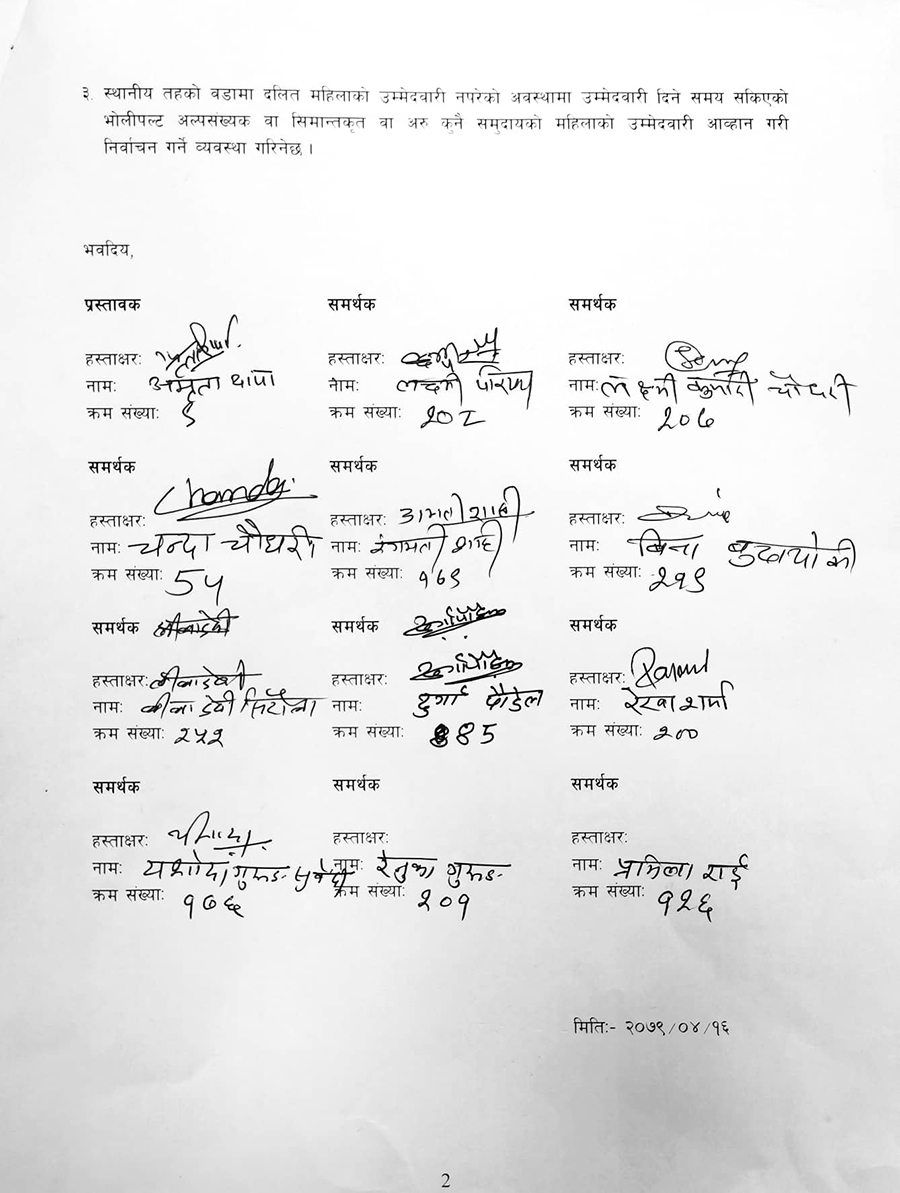 ३. स्थानीय तहको वडामा दलित महिलाको उम्मेदवारी नपरेको अवस्थामा उम्मेदवारी दिने समय सकिएको
भोलीपल्ट अल्पसंख्यक वा सिमान्तकृत वा अरु कुनै समुदायको महिलाको उम्मेदवारी आव्हान गरी
निर्वाचन गर्ने व्यवस्था गरिनेछ ।
भवदिय,
प्रस्तावक समर्थक समर्थक
हस्ताक्षर: हस्ताक्षर: हस्ताक्षर:
नामः अमृता थापा नामः लक्ष्मी नामः लक्ष्मी कुमारी चौधरी
क्रम संख्याः ९ क्रम संख्याः क्रम संख्याः २०७
समर्थक समर्थक समर्थक
हस्ताक्षर: Chanda हस्ताक्षर: हस्ताक्षर:
नामः चन्दा चौधरी नामः रंगमती शाही नामः बिना बुढाथोकी
क्रम संख्याः 54 क्रम संख्याः १६९ क्रम संख्याः २१९
समर्थक समर्थक समर्थक
हस्ताक्षर: लीलादेवी हस्ताक्षर: हस्ताक्षर:
नामः लीला देवी सिटौला नामः दुर्गा पौडेल नामः रेखा शर्मा
क्रम संख्याः २५२ क्रम संख्याः 85 क्रम संख्याः २००
समर्थक समर्थक समर्थक
हस्ताक्षर: हस्ताक्षर: हस्ताक्षर:
नामः यशोदा गुरुङ सुवेदी नामः रेनुका गुरुङ नामः प्रमिला राई
क्रम संख्याः १७६ क्रम संख्याः २०१ क्रम संख्याः १२६
मितिः- २०७९/०४/१६
2